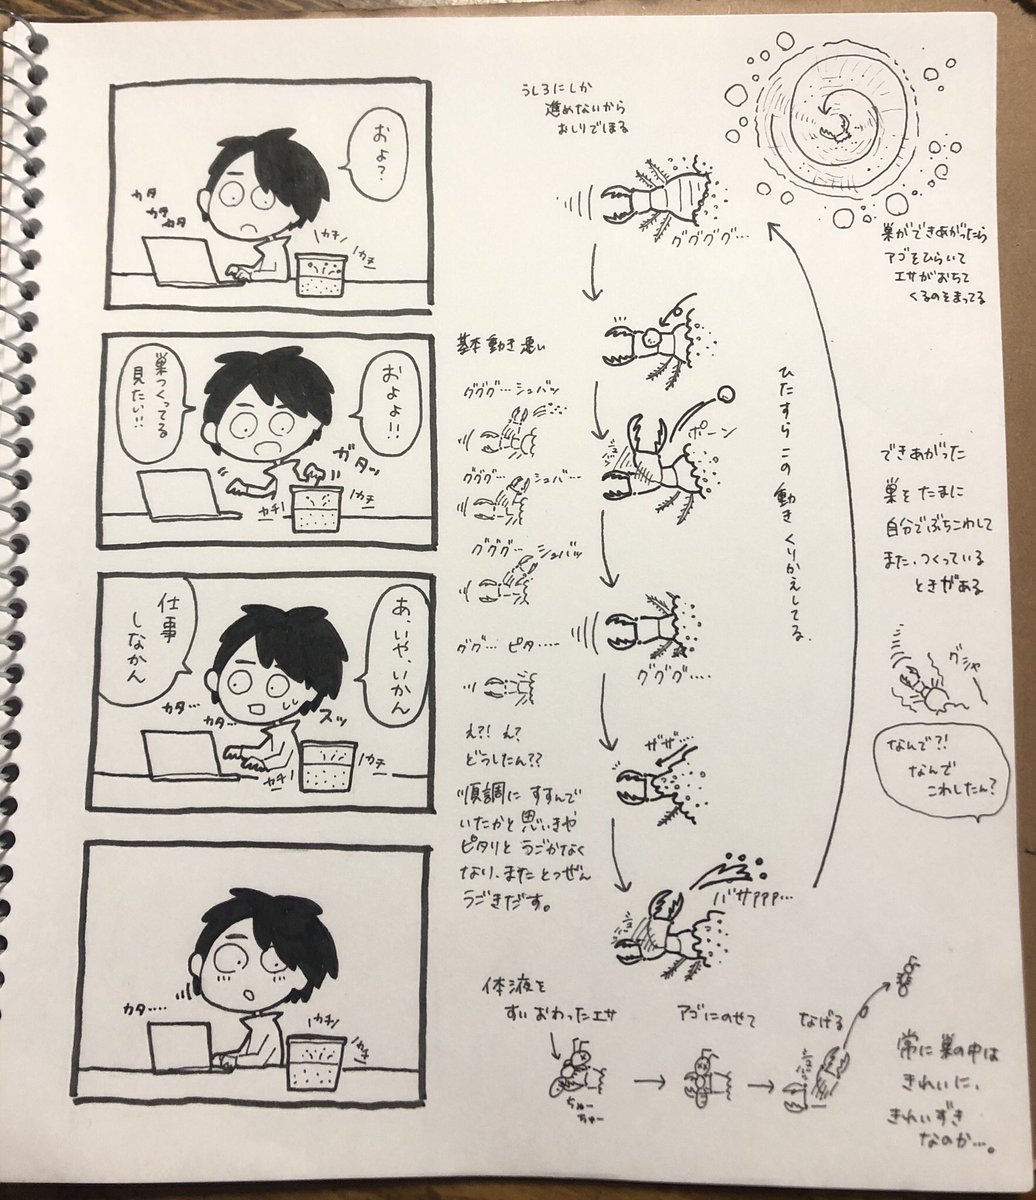 およ?
カタ
カタ
カタ
カチ
カチ
およよ!!
巣つくってる
見たい!!
ガタッ
カチ
カチ
あ、いや、いかん
仕事
しなかん
カタ…
カタ…
スッ
カチ
カチ
カタ…
カチ
カチ
うしろにしか
進めないから
おしりでほる
ググググ…
ポーン
グググ…
ザザ…
バサァァァ…
ひたすらこの動きくりかえしてる、
基本動き速い
グググ…シュバッ
グググ…シュバ…
グググ…シュバッ
ググ…ピタ……
え?!え?
どうしたん??
順調にすすんで
いたかと思いきや
ピタリとうごかなく
なり、またとつぜん
うごきだす。
巣ができあがったら
アゴをひらいて
エサがおちて
くるのをまってる
できあがった
巣をたまに
自分でぶちこわして
また、つくっている
ときがある
グシャ
なんで?!
なんで
こわしたん?
体液を
すいおわったエサ
ちゅー
ちゅー
アゴにのせて
なげる
常に巣の中は
きれいに、
きれいずき
なのか…。